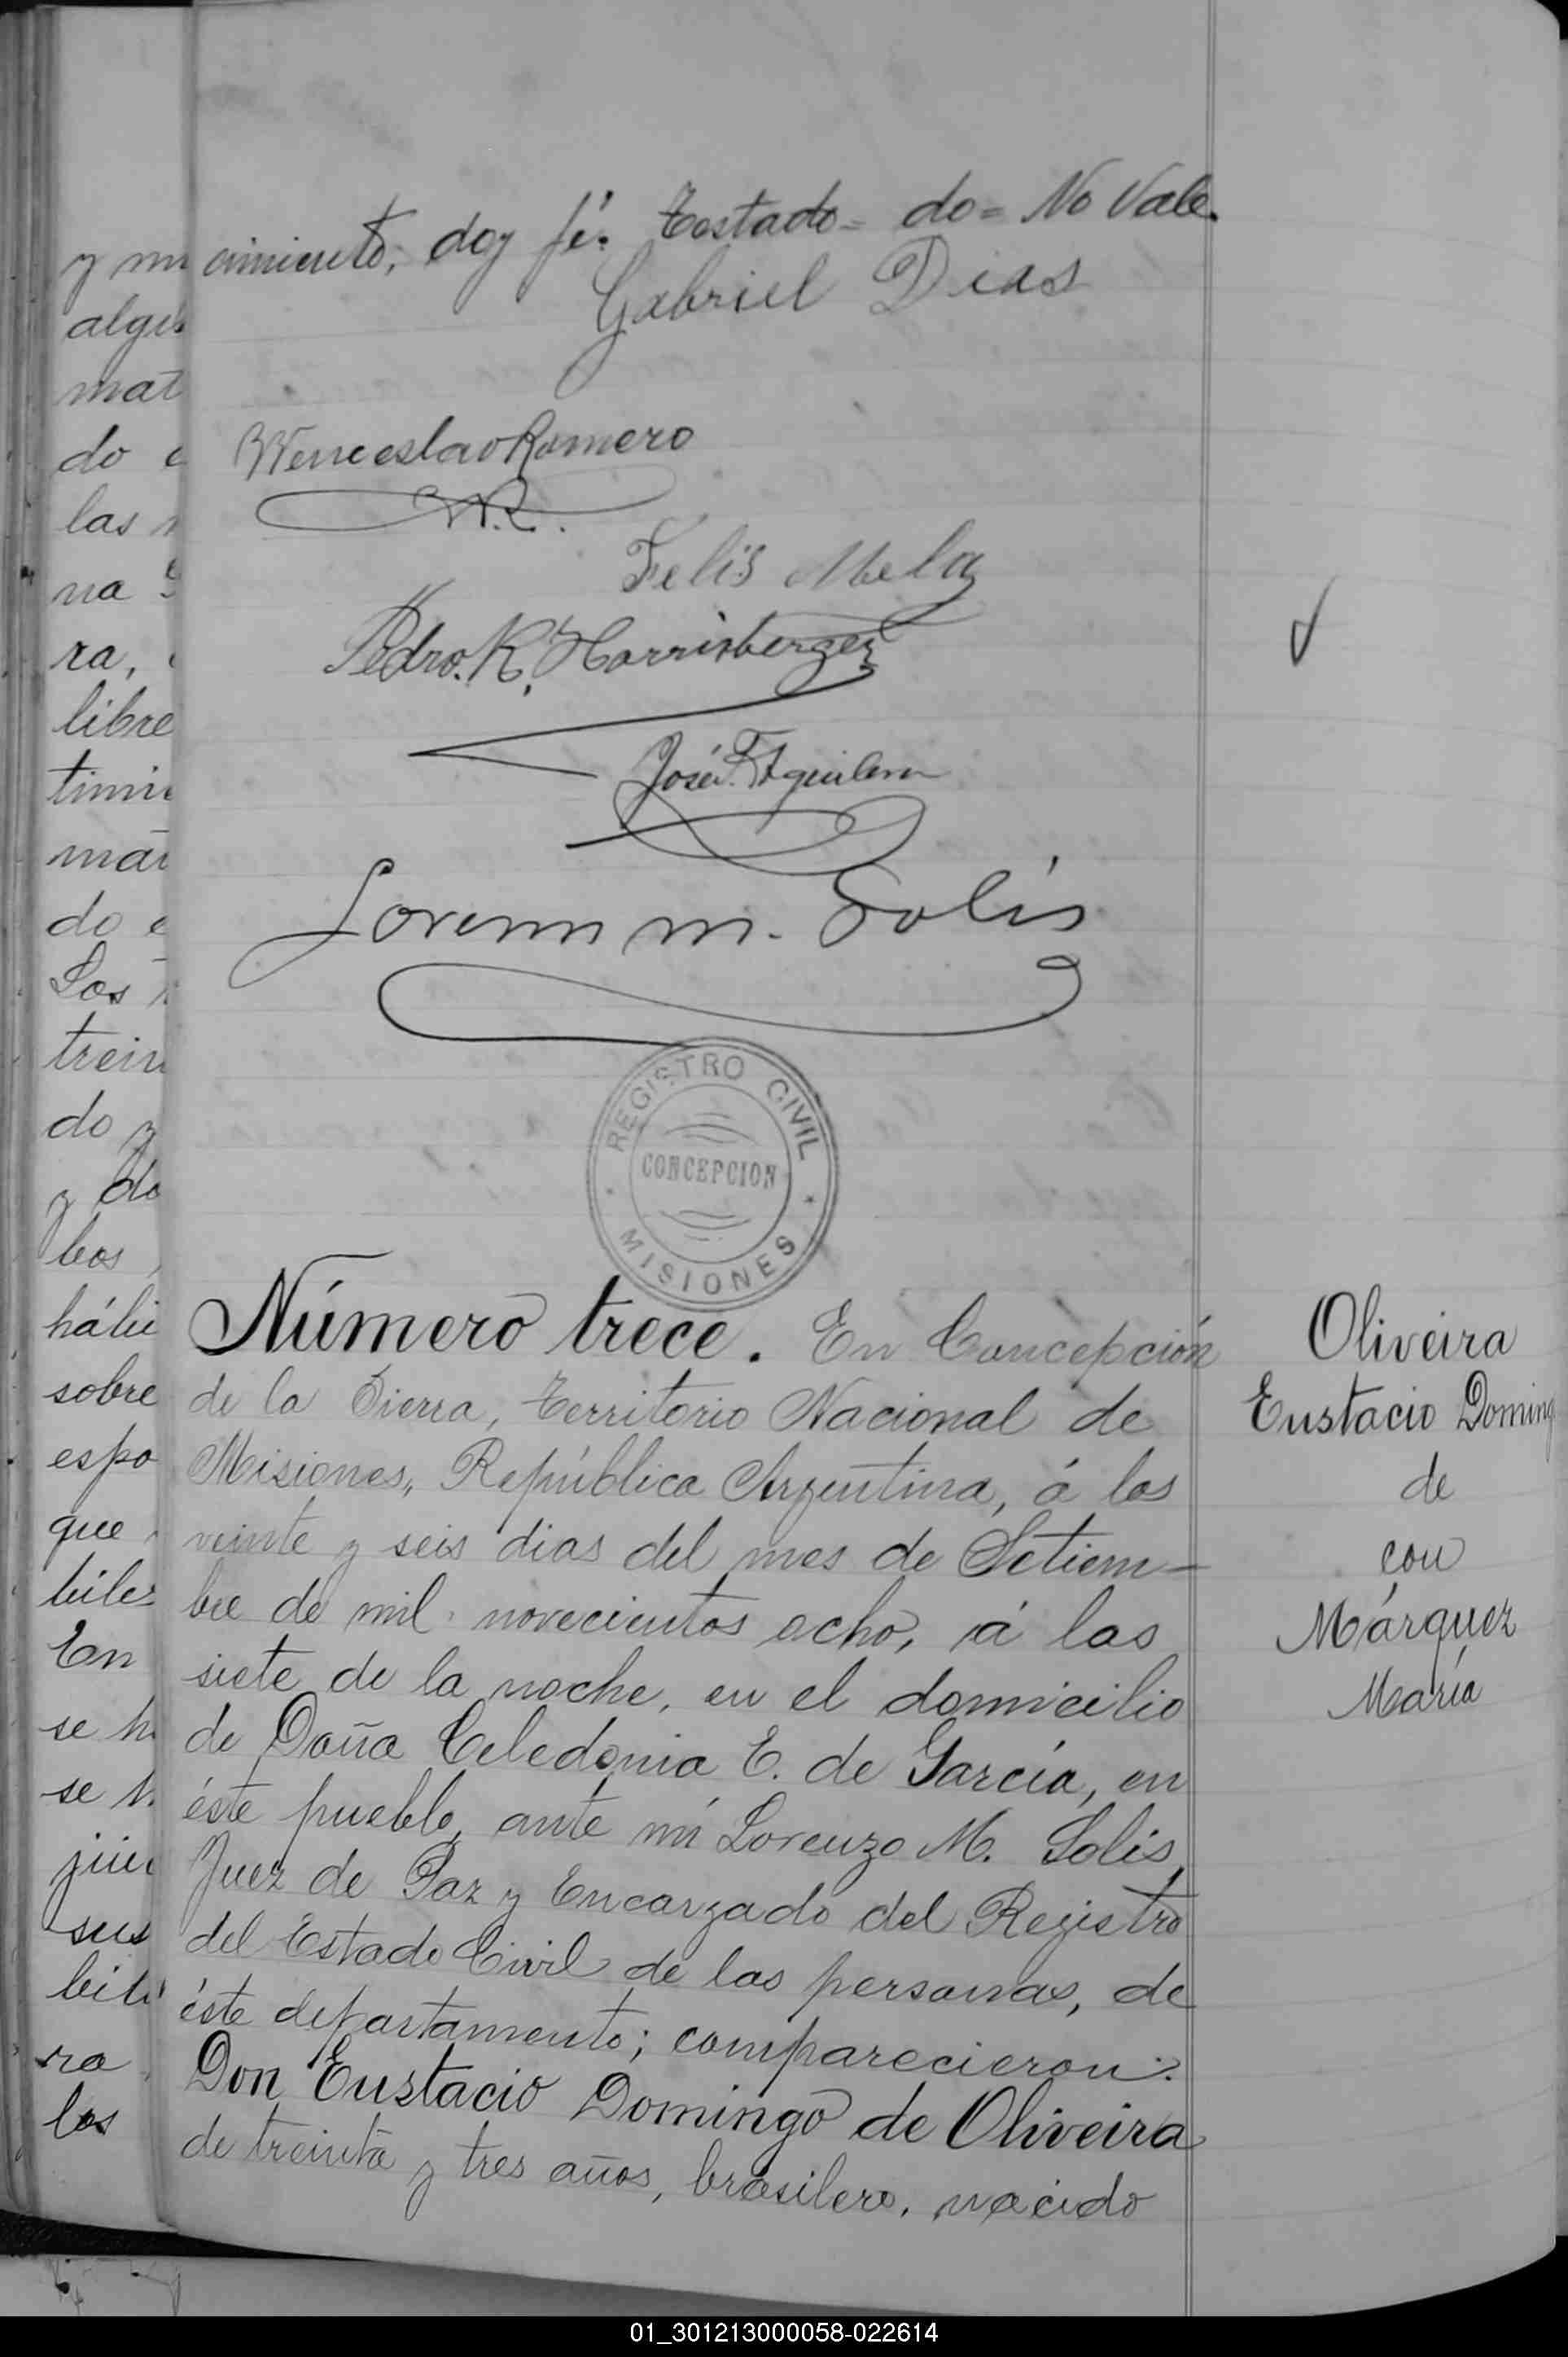 cimiento, doy fé. Testado= do= No Vale.
Gabriel Dias
Wenceslao Romero
W.R.
Felis Mela
Pedro. K. Harrisberger
José F. Aguilera
Lorenzo M. Solis
REGISTRO CIVIL
CONCEPCION
MISIONES
Número trece. En Concepción
de la Sierra, Territorio Nacional de
Misiones, República Argentina, á los
veinte y seis dias del mes de Setiem-
bre de mil novecientos ocho, á las
siete de la noche, en el domicilio
de Doña Celedonia E. de García, en
éste pueblo, ante mí Lorenzo M. Solis,
Juez de Paz y Encargado del Registro
del Estado Civil de las personas, de
éste departamento; comparecieron:
Don Eustacio Domingo de Oliveira
de treinta y tres años, brasilero, nacido
Oliveira
Eustacio Doming
de
con
Márquez
María
y
algu
mat
do
las
na
ra,
libre
do
Los
trein
do y
y do
bos
hábi
sobre
espo
que
biles
En
se h
se h
sus
ra
los
01_301213000058-022614